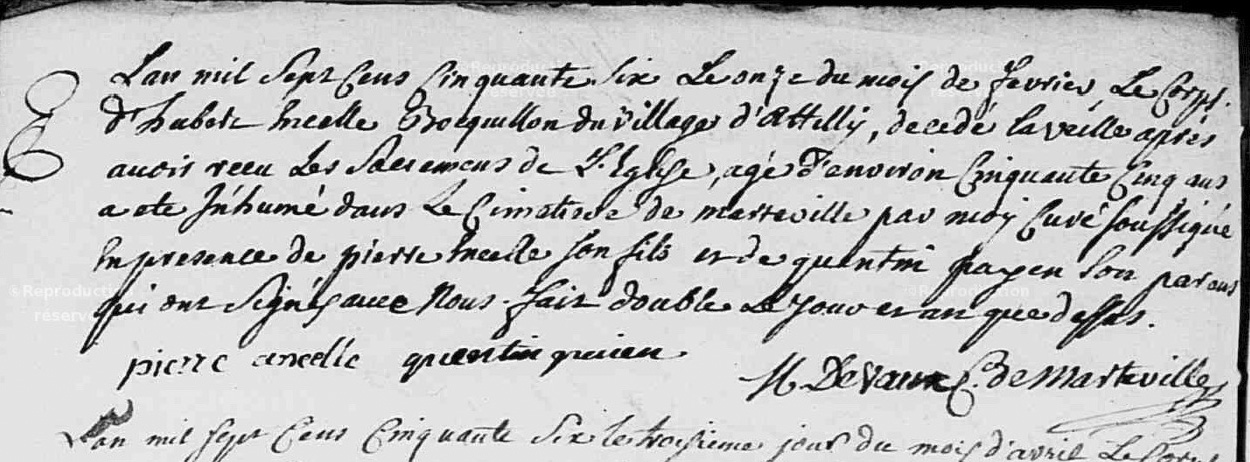 Lan mil Sept Cens Cinquante six Le onze du mois de fevrier, Le Corps
d'hubert Ancelle Bocquillon du village d'Attilly, decedé la veille après
avoir recu Les Sacremens de L'Eglise, agé d'environ Cinquante Cinq ans
a eté Inhumé dans Le Cimetiere de marteville par moy Curé soussigné
En presence de pierre Ancelle son fils et de quentin payen son parent
qui ont Signés avec Nous. fait double Le jour et an que dessus.
pierre ancelle quentin paien
M. Devaux C. de Marteville
Lan mil sept Cens Cinquante Six le troisieme jour du mois d'avril Le Corps